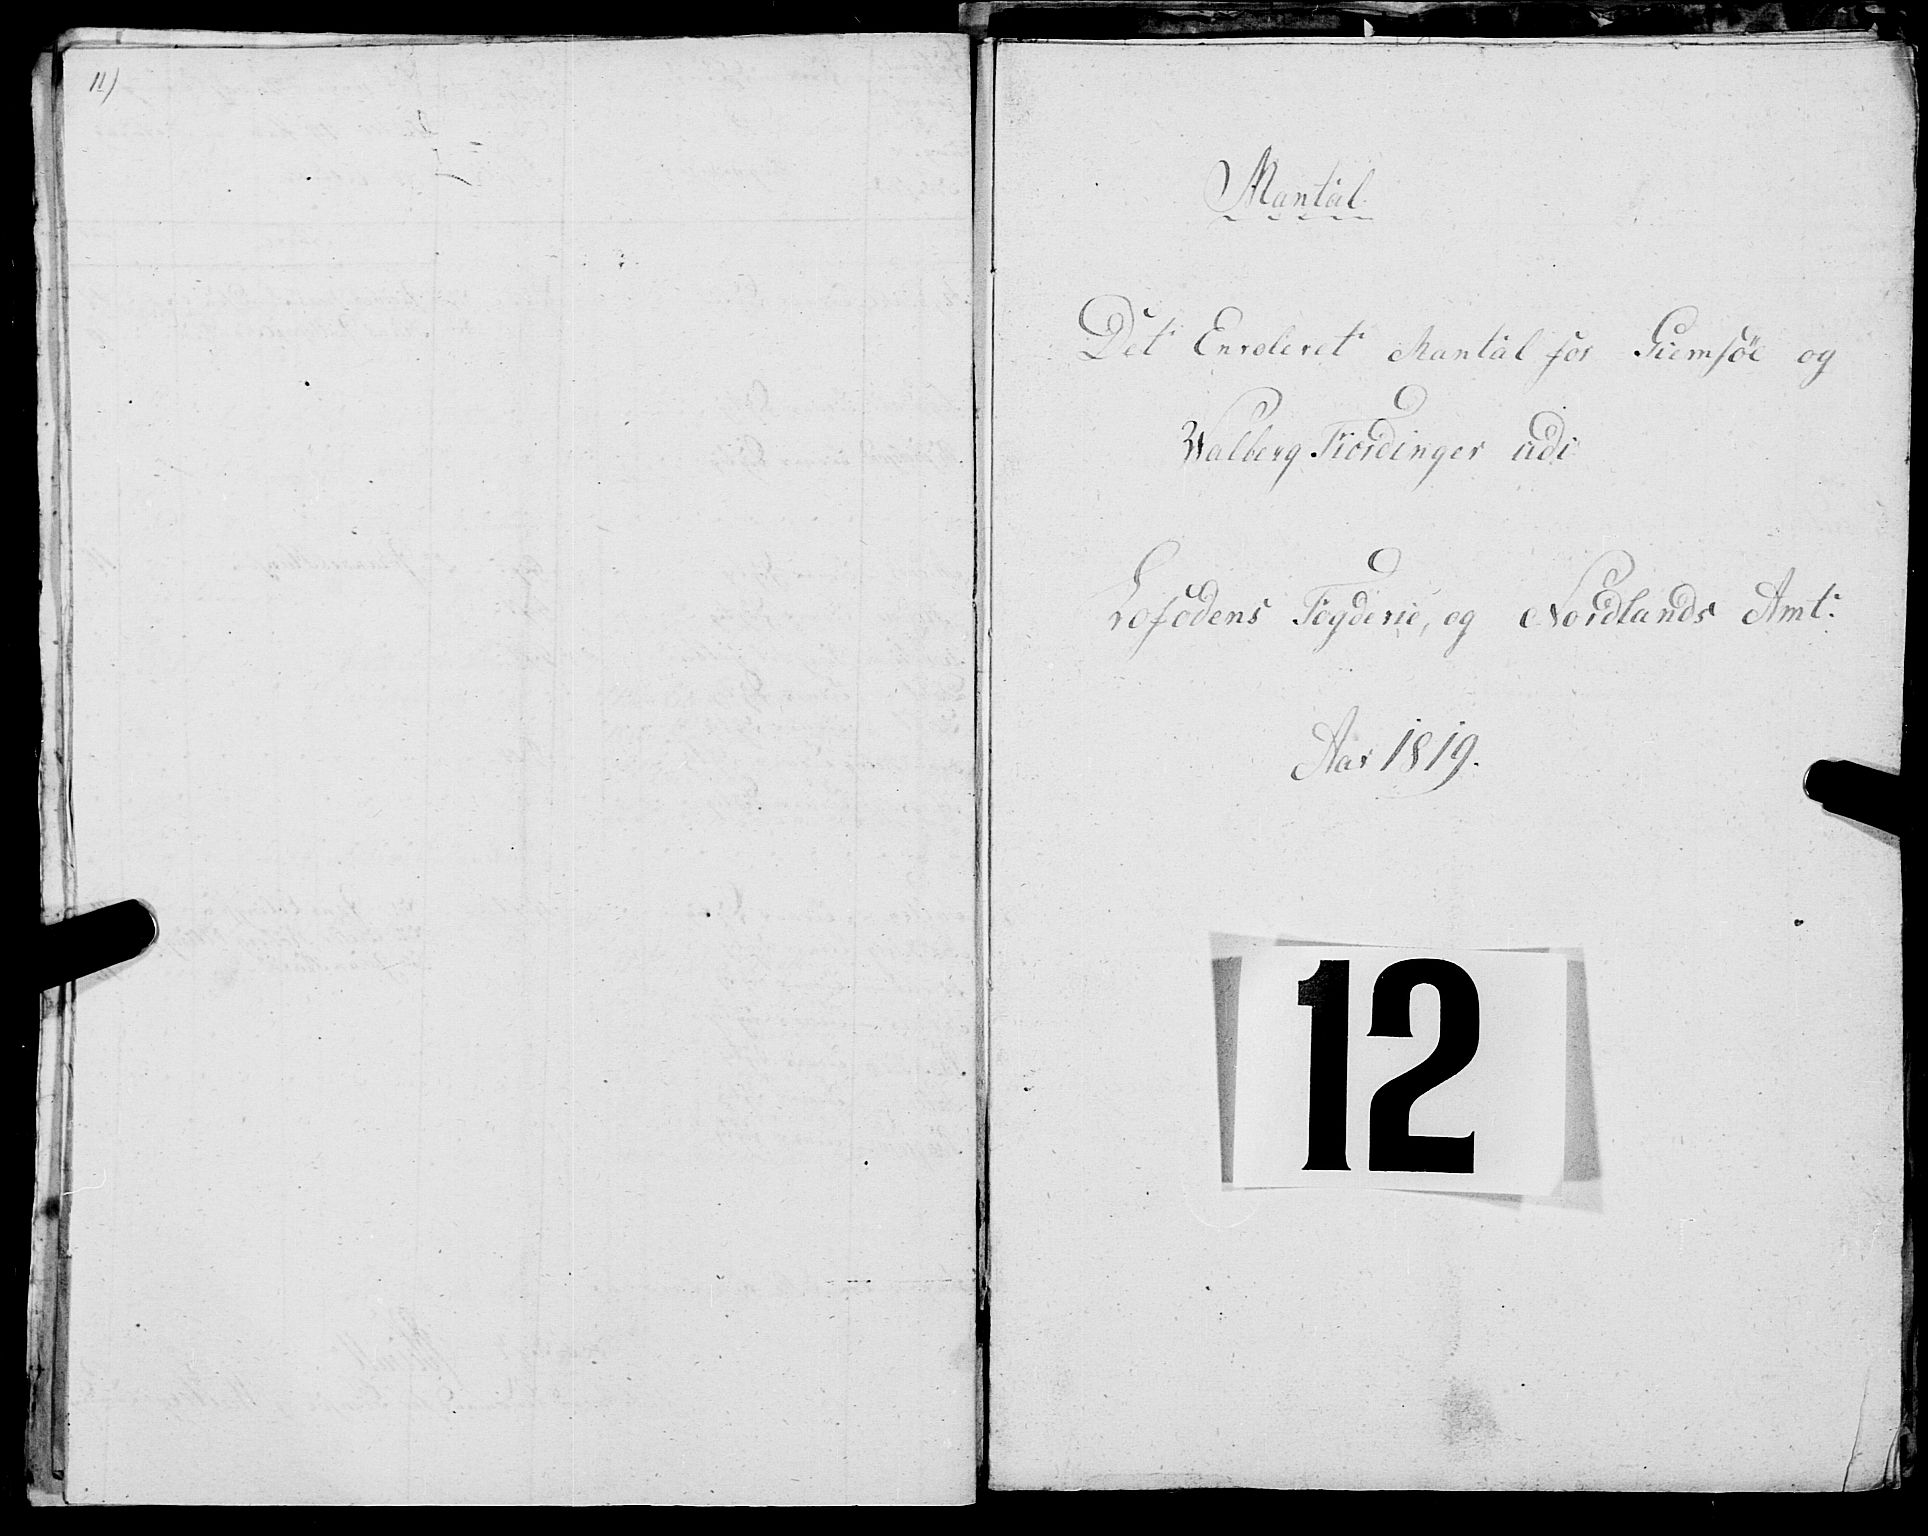 11)
Mantal
Det Enroleret Mantal for Giemsöe og
Walberg Fiordinger udi
Lofodens Fogderie, og Nordlands Amt.
Aar 1819.
12